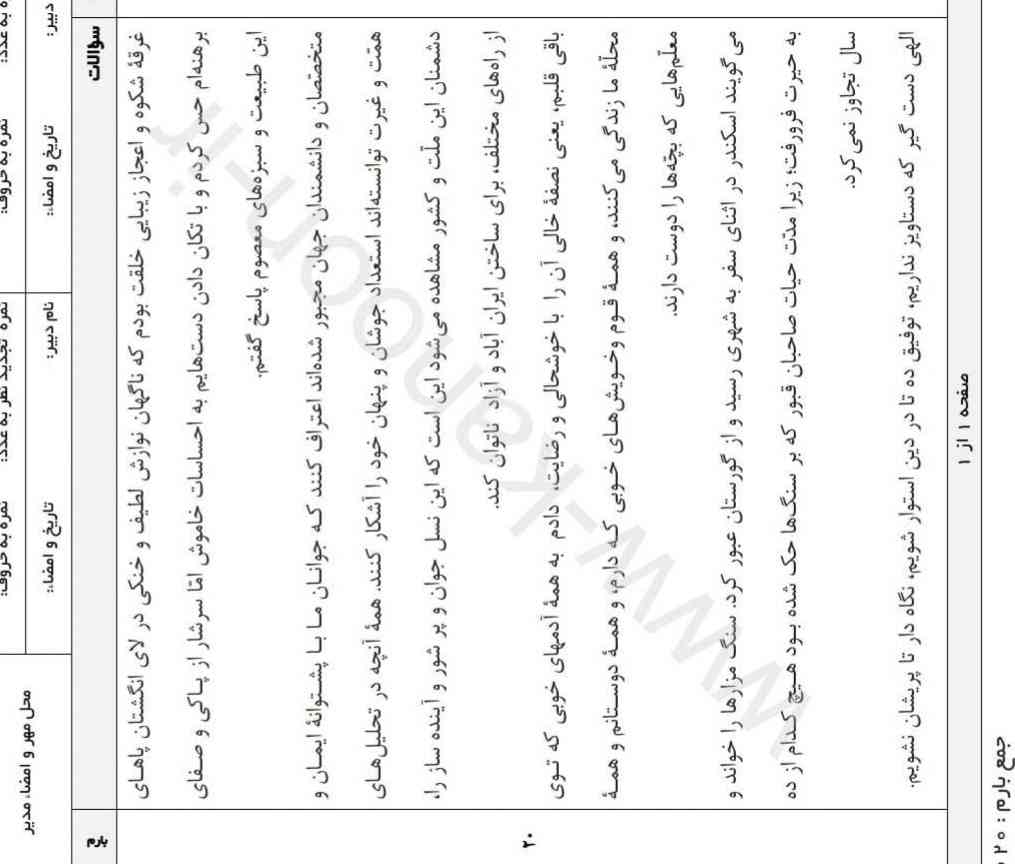 محل مهر و امضاء مدیر
نمره تجدید نظر به عدد:
نمره به حروف:
نام دبیر:
تاریخ و امضاء:
نمره به حروف:
دبیر:
تاریخ و امضاء:
بارم
سؤالات
غرقهٔ شکوه و اعجاز زیبایی خلقت بودم که ناگهان نوازش لطیف و خنکی در لای انگشتان پاهای
برهنه‌ام حس کردم و با تکان دادن دست‌هایم به احساسات خاموش امّا سرشار از پاکی و صفای
این طبیعت و سبزه‌های معصوم پاسخ گفتم.
متخصّصان و دانشمندان جهان مجبور شده‌اند اعتراف کنند که جوانان ما با پشتوانهٔ ایمان و
همّت و غیرت توانسته‌اند استعداد جوشان و پنهان خود را آشکار کنند. همهٔ آنچه در تحلیل‌های
دشمنان این ملّت و کشور مشاهده می‌شود این است که این نسل جوان و پر شور و آینده ساز را،
از راه‌های مختلف، برای ساختن ایران آباد و آزاد ناتوان کند.
باقی قلبم، یعنی نصفهٔ خالی آن را با خوشحالی و رضایت، دادم به همهٔ آدمهای خوبی که توی
محلّهٔ ما زندگی می کنند، و همهٔ قوم وخویش‌های خوبی که دارم، و همهٔ دوستانم و همهٔ
معلّم‌هایی که بچّه‌ها را دوست دارند.
می گویند اسکندر در اثنای سفر به شهری رسید و از گورستان عبور کرد. سنگ مزارها را خواند و
به حیرت فرورفت؛ زیرا مدّت حیات صاحبان قبور که بر سنگ‌ها حک شده بود هیچ کدام از ده
سال تجاوز نمی کرد.
الهی دست گیر که دستاویز نداریم، توفیق ده تا در دین استوار شویم، نگاه دار تا پریشان نشویم.
۲۰
صفحه ۱ از ۱
جمع بارم : ۲۰
www-kanoon-ir